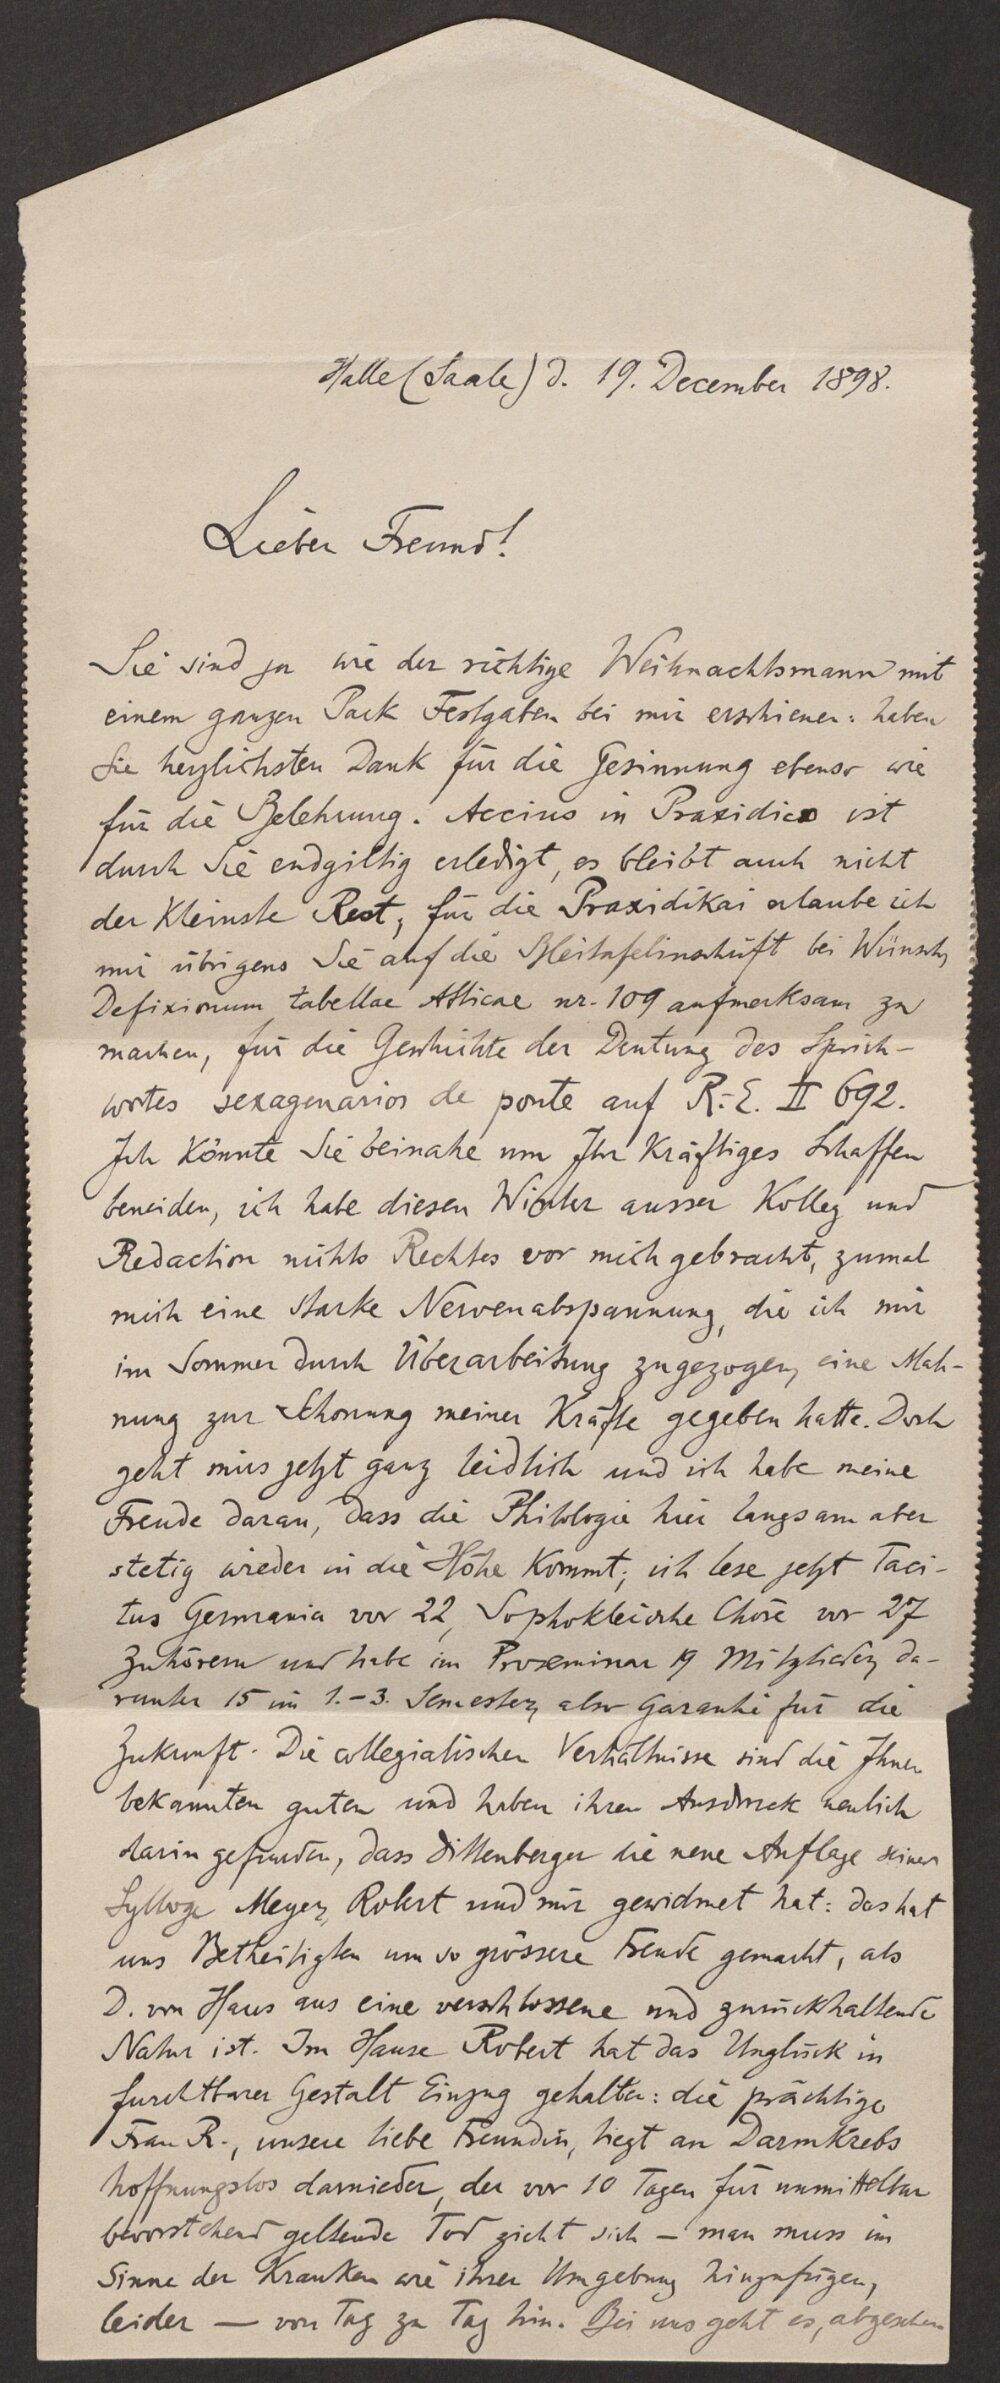 Halle (Saale) d. 19. December 1898.
Lieber Freund!
Sie sind ja wie der richtige Weihnachtsmann mit
einem ganzen Pack Festgaben bei mir erschienen: haben
Sie herzlichsten Dank für die Gesinnung ebenso wie
für die Belehrung. Accius in Praxidico ist
durch Sie endgiltig erledigt, es bleibt auch nicht
der kleinste Rest, für die Praxidikai erlaube ich
mir übrigens Sie auf die Bleitafelinschrift bei Wünsch,
Defixionum tabellae Atticae nr. 109 aufmerksam zu
machen, für die Geschichte der Deutung des Sprich-
wortes sexagenarios de ponte auf R.-E. II 692.
Ich könnte Sie beinahe um Ihr kräftiges Schaffen
beneiden, ich habe diesen Winter ausser Kolleg und
Redaction nichts Rechtes vor mich gebracht, zumal
mich eine starke Nervenabspannung, die ich mir
im Sommer durch Überarbeitung zugezogen, eine Mah-
nung zur Schonung meiner Kräfte gegeben hatte. Doch
geht mirs jetzt ganz leidlich und ich habe meine
Freude daran, dass die Philologie hier langsam aber
stetig wieder in die Höhe kommt; ich lese jetzt Taci-
tus Germania vor 22, Sophokleische Chöre vor 27
Zuhörern und habe im Proseminar 19 Mitglieder, da-
runter 15 im 1.-3. Semester, also Garantie für die
Zukunft. Die collegialischen Verhältnisse sind die Ihnen
bekannten guten und haben ihren Ausdruck neulich
darin gefunden, dass Dittenberger die neue Auflage seiner
Sylloge Meyer, Robert und mir gewidmet hat: das hat
uns Betheiligten um so grössere Freude gemacht, als
D. von Haus aus eine verschlossene und zurückhaltende
Natur ist. Im Hause Robert hat das Unglück in
furchtbarer Gestalt Einzug gehalten: die prächtige
Frau R., unsere liebe Freundin, liegt an Darmkrebs
hoffnungslos darnieder, der vor 10 Tagen für unmittelbar
bevorstehend geltende Tod zieht sich – man muss im
Sinne der Kranken wie ihrer Umgebung hinzufügen,
leider – von Tag zu Tag hin. Bei uns geht es, abgesehen